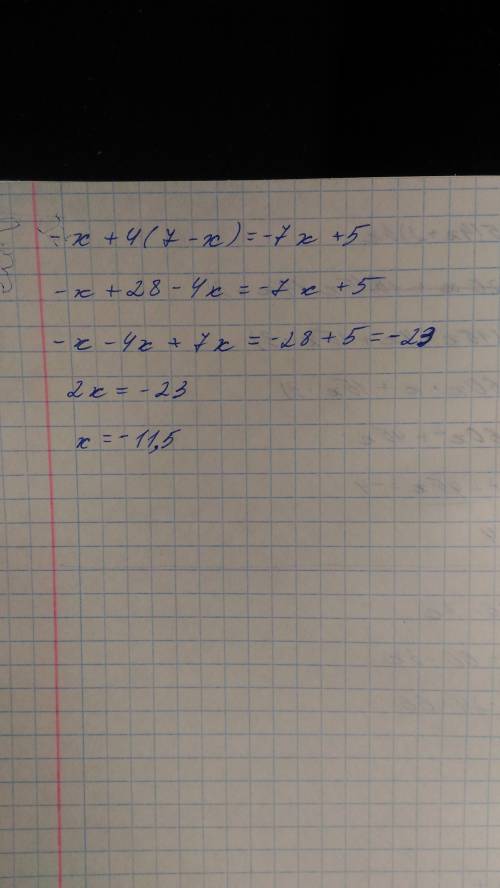 -x + 4(7 - x) = -7x + 5
-x + 28 - 4x = -7x + 5
-x - 4x + 7x = -28 + 5 = -23
2x = -23
x = -11,5